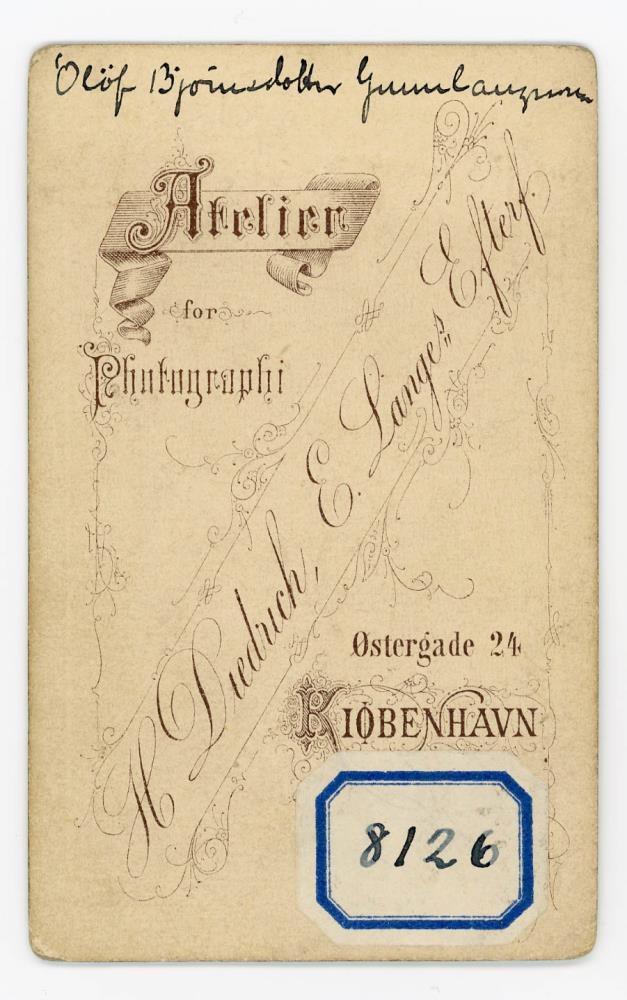 Ólöf Björnsdóttir
Atelier
for
Photographi
H Diedrich, E. Langes Efterf.
Østergade 24
KIØBENHAVN
8126